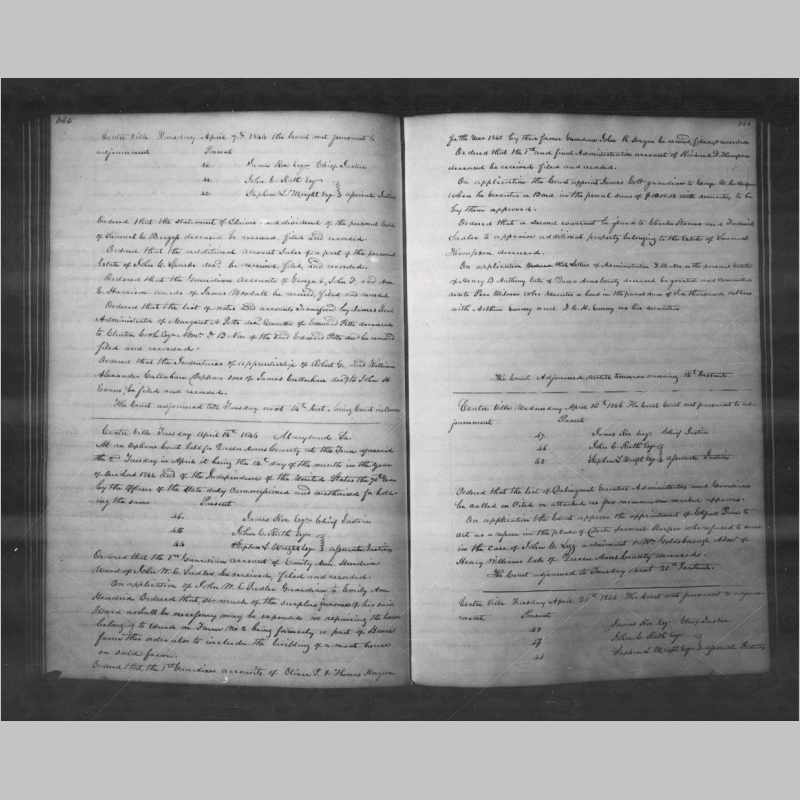 Centre Ville Tuesday April 7th 1846 the Court met pursuant to
adjournment Present
James Roe Esqr Chief Justice
John C. Ruth Esqr
Stephen L. Wright Esqr associate Justices
Ordered that the statement of Claims and dividend of the personal Estate
of Samuel C. deceased be received filed and recorded
Ordered that the additional account Sales of a part of the personal
Estate of John C. Sparks decd. be received, filed, and recorded.
Ordered that the Guardian accounts of George &, John F. and Ann
E. Harrison wards of James be received, filed and recorded
Ordered that the list of notes and accounts transferred by James
Administrator of Margaret A. Pitts decd. of Edward Pitts deceased
to Clinton Cook Esqr Admr. D. B. Non of the said Edward Pitts decd be received
filed and recorded
Ordered that the Indentures of apprenticeship of Robert G. and William
Alexander Orphan sons of James decd. to John H.
Evans, be filed and recorded.
The Court adjourned till Tuesday next 14th Inst. being Court in Course
Centre Ville Tuesday April 14th 1846 Maryland Sc.
At an Orphans Court held for Queen Anns County at the Town aforesaid
the 2nd Tuesday in April it being the 14th day of the month in the Year
of our Lord 1846 and of the Independence of the United States the 70th Year
by the Officers of the State duly Commissioned and authorised for hold-
ing the same Present
James Roe Esqr Chief Justice
John C. Ruth Esqr
Stephen L. Wright Esqr associate Justices
Ordered that the Guardian account of Emily Ann Hendrix
Ward of John W. E. Sudler be received, filed and recorded.
On application of John W. E. Sudler Guardian to Emily Ann
Hendrix Ordered that, so much of the surplus income of his said
Ward as shall be necessary may be expended in repairing the house
belonging to Ward on Farm No. 2 being formerly a part of
farm this order also to include the building of a meat house
on said farm.
Ordered that the 1st Guardian accounts of Oliver P. & Thomas
for the Year 1845 by their former Guardian John R. be received filed & recorded
Ordered that the 1st and final Administration account of Richard
deceased be received filed and recorded.
On application the Court appoint James guardian to George W.
when he executes a Bond in the penal sum of with securities to be
by them approved.
Ordered that a second warrant be granted to Charles and Frederick
Sudler to appraise additional property belonging to the Estate of Samuel
Thompson deceased.
On application Ordered that Letters of Administration on the personal estate
of Henry B. Anthony late of Queen Anns County deceased be granted and committed
unto who executes a bond in the penal sum of thousand dollars
with Arthur Emory and Emory as his securities
The Court Adjourned untill tomorrow morning 15th Instant.
Centre Ville Wednesday April 15th 1846 The Court met pursuant to ad-
journment Present
James Roe Esqr Chief Justice
John C. Ruth Esqr
Stephen L. Wright Esqr associate Justices
Ordered that the list of Delinquent Executors Administrators and Guardians
be called on Cited or attached as per memorandum marked appears.
On application the Court approve the appointment of to
act as a referee in the place of who refused to serve
in the case of John C. against Wm. Goldsborough Admr. of
Henry Williams late of Queen Anns County deceased.
The Court adjourned to Tuesday next 21st Instant.
Centre Ville Tuesday April 21st 1846 The Court met pursuant to adjour-
nment Present
James Roe Esqr Chief Justice
John C. Ruth Esqr
Stephen L. Wright Esqr associate Justices